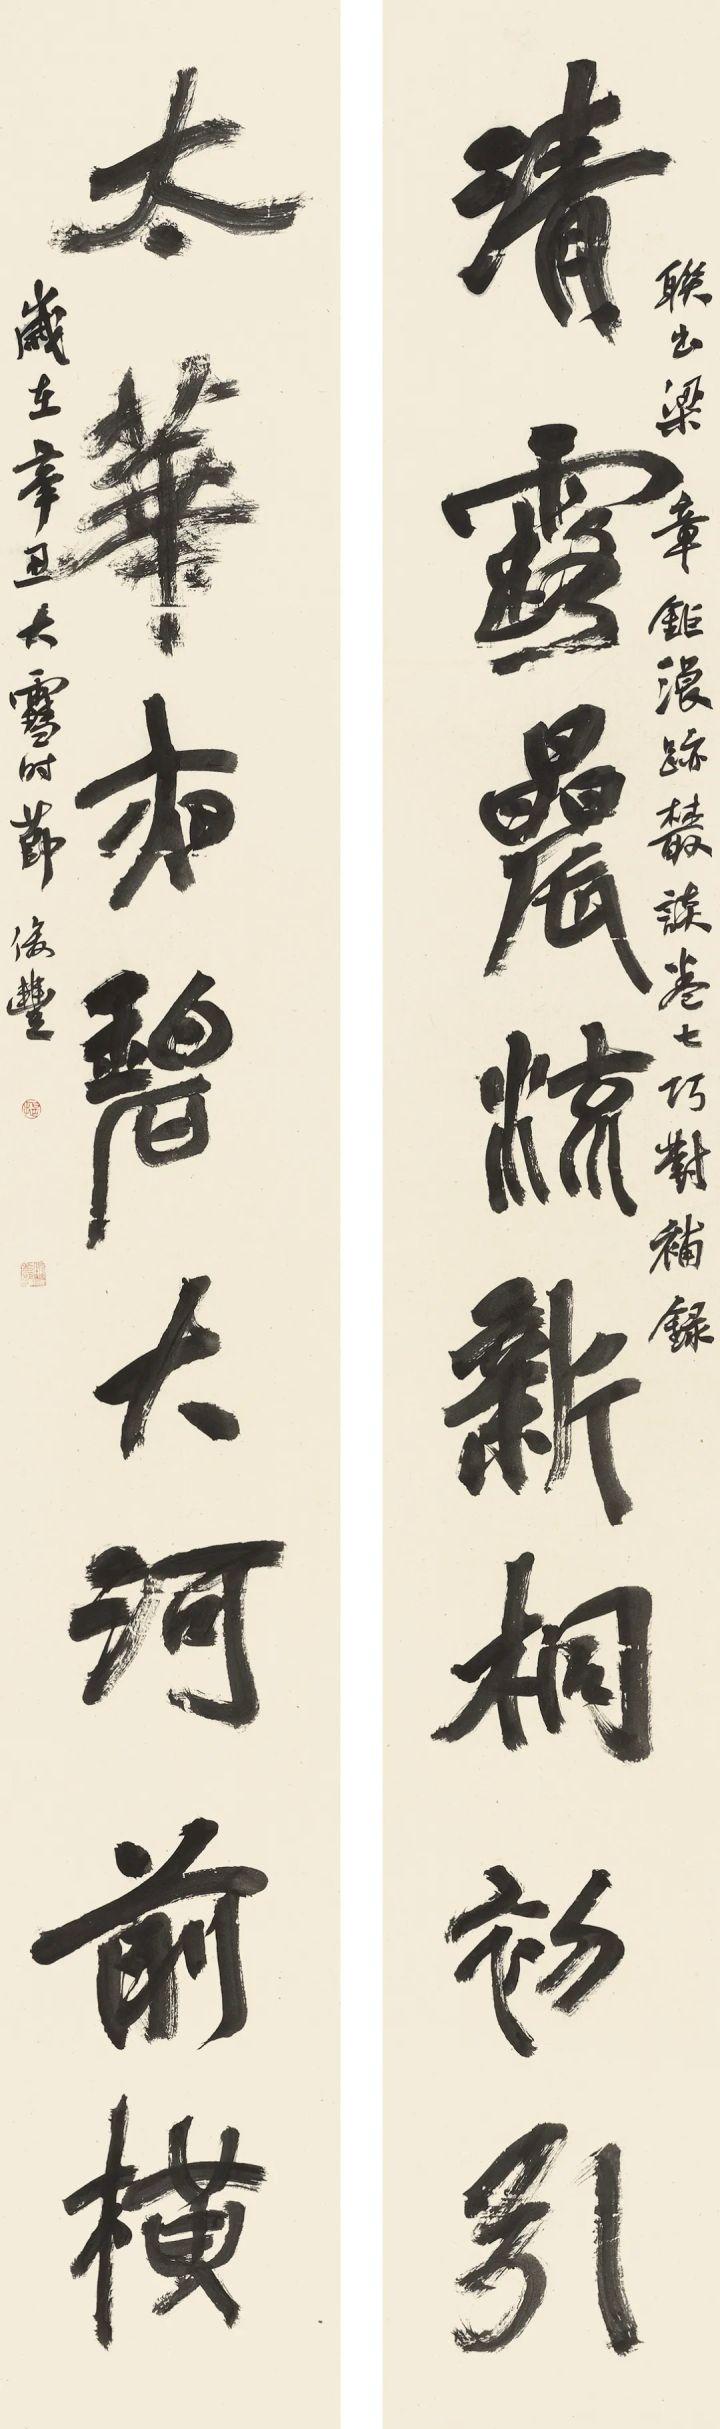 聯出梁章鉅浪跡叢談卷七巧對補錄
清露晨流新桐初引
太華夜碧大河前橫
歲在辛丑大雪时節